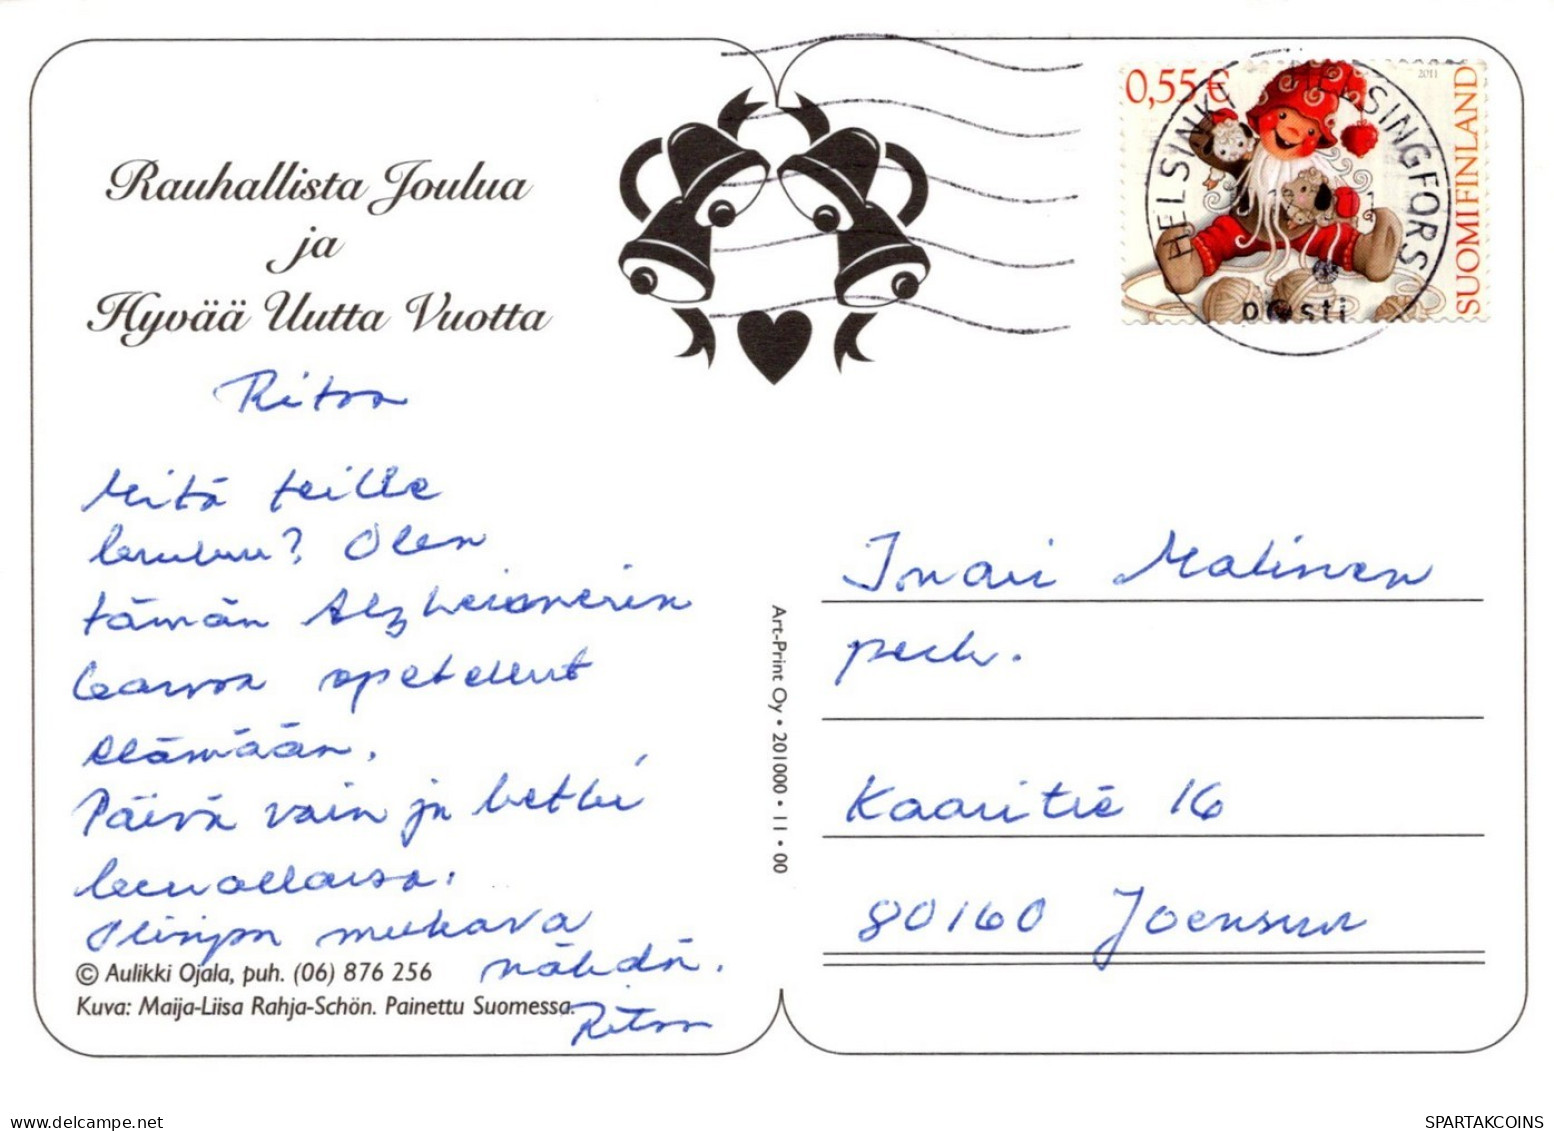 Rauhallista Joulua
ja
Hyvää Uutta Vuotta
Ritva
Mitä teille
kuuluu? Olen
tämän Alzheimerin
kanssa opetellut
elämään.
Päivä vain ja hetki
kerrallansa.
Olisipa mukava
nähdä.
Ritva
© Aulikki Ojala, puh. (06) 876 256
Kuva: Maija-Liisa Rahja-Schön. Painettu Suomessa.
Art-Print Oy • 201000 • 11 • 00
0,55 €
2011
SUOMI FINLAND
HELSINKI HELSINGFORS
posti
Inari Malinen
perh.
Kaaritie 16
80160 Joensuu
delcampe.net
SPARTAKCOINS